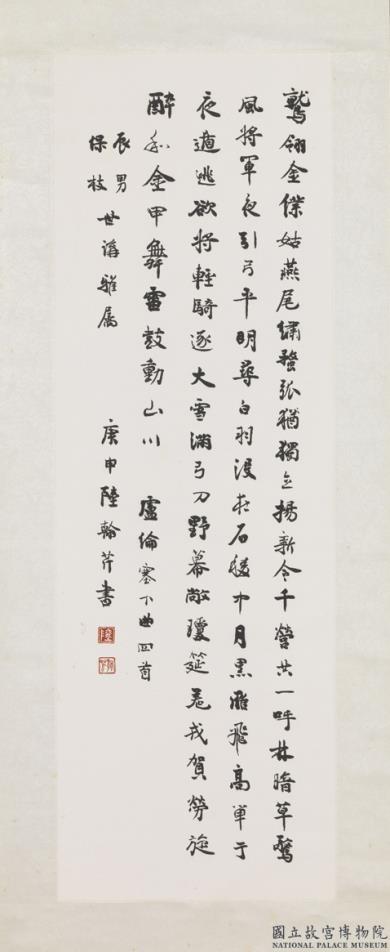 鷲翎金僕姑燕尾繡蝥弧猶獨立揚新令千營共一呼林暗草驚
風將軍夜引弓平明尋白羽沒在石稜中月黑雁飛高單于
夜遁逃欲將輕騎逐大雪滿弓刀野幕敞瓊筵羌戎賀勞旋
醉和金甲舞雷鼓動山川 盧倫塞下曲四首
辰男
保枝
世講雅屬
庚申陸翰芹書
國立故宮博物院
NATIONAL PALACE MUSEUM